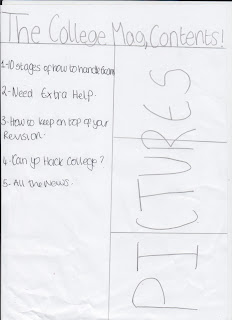 The College Mag, Contents!
1-10 stages of how to handle Exam
2-Need Extra Help.
3-How to keep on top of your
Revision.
4-Can yo Hack College?
5-All the News.
PICTURES